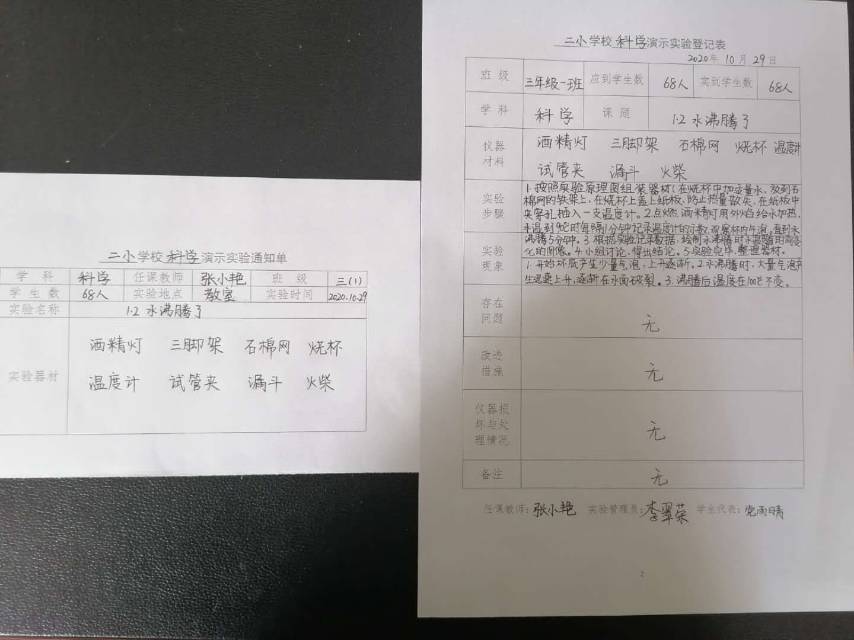 二小学校科学演示实验通知单
学科 科学 任课教师 张小艳 班级 三(1)
学生数 68人 实验地点 教室 实验时间 2020.10.29
实验名称 1.2 水沸腾了
实验器材
酒精灯 三脚架 石棉网 烧杯
温度计 试管夹 漏斗 火柴
二小学校科学演示实验登记表
2020年10月29日
班级 三年级一班 应到学生数 68人 实到学生数 68人
学科 科学 课题 1.2 水沸腾了
仪器材料
酒精灯 三脚架 石棉网 烧杯 温度计
试管夹 漏斗 火柴
实验步骤
1.按照实验原理图组装器材(在烧杯中加适量水、放到石
棉网的铁架上,在烧杯上盖上纸板,防止热量散失,在纸板中
央穿孔插入一支温度计。2.点燃酒精灯用外焰给水加热,
水温到90℃时每隔1分钟记录温度计的示数,观察杯内气泡,直到水
沸腾5分钟。3.根据实验记录数据,绘制水沸腾时水温随时间变
化的图像。4.小组讨论,得出结论。5.实验完毕,整理器材。
实验现象
1.开始环底产生少量气泡,上升逐渐。2.水沸腾时,大量气泡产
生迅速上升,逐渐在水面破裂。3.沸腾后温度在100℃不变。
存在问题 无
改进措施 无
仪器损坏与处理情况 无
备注 无
任课教师:张小艳 实验管理员:李翠荣 学生代表:党雨晴
2